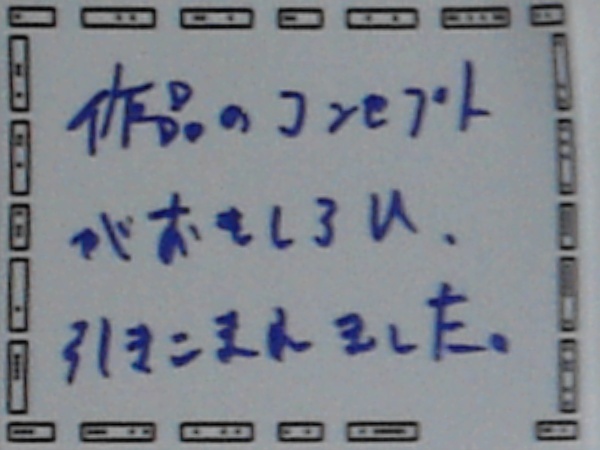 作品のコンセプト
がおもしろい、
引きこまれました。